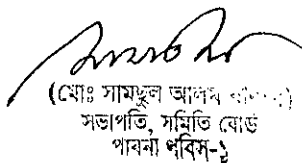 (মোঃ সামছুল আলম
সভাপতি, সমিতি বোর্ড
পাবনা পবিস-১